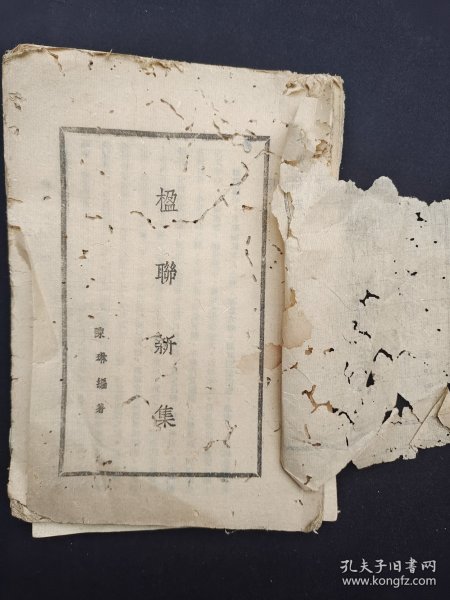 楹聯新集
陳琳編著
孔夫子旧书网
www.kongfz.com